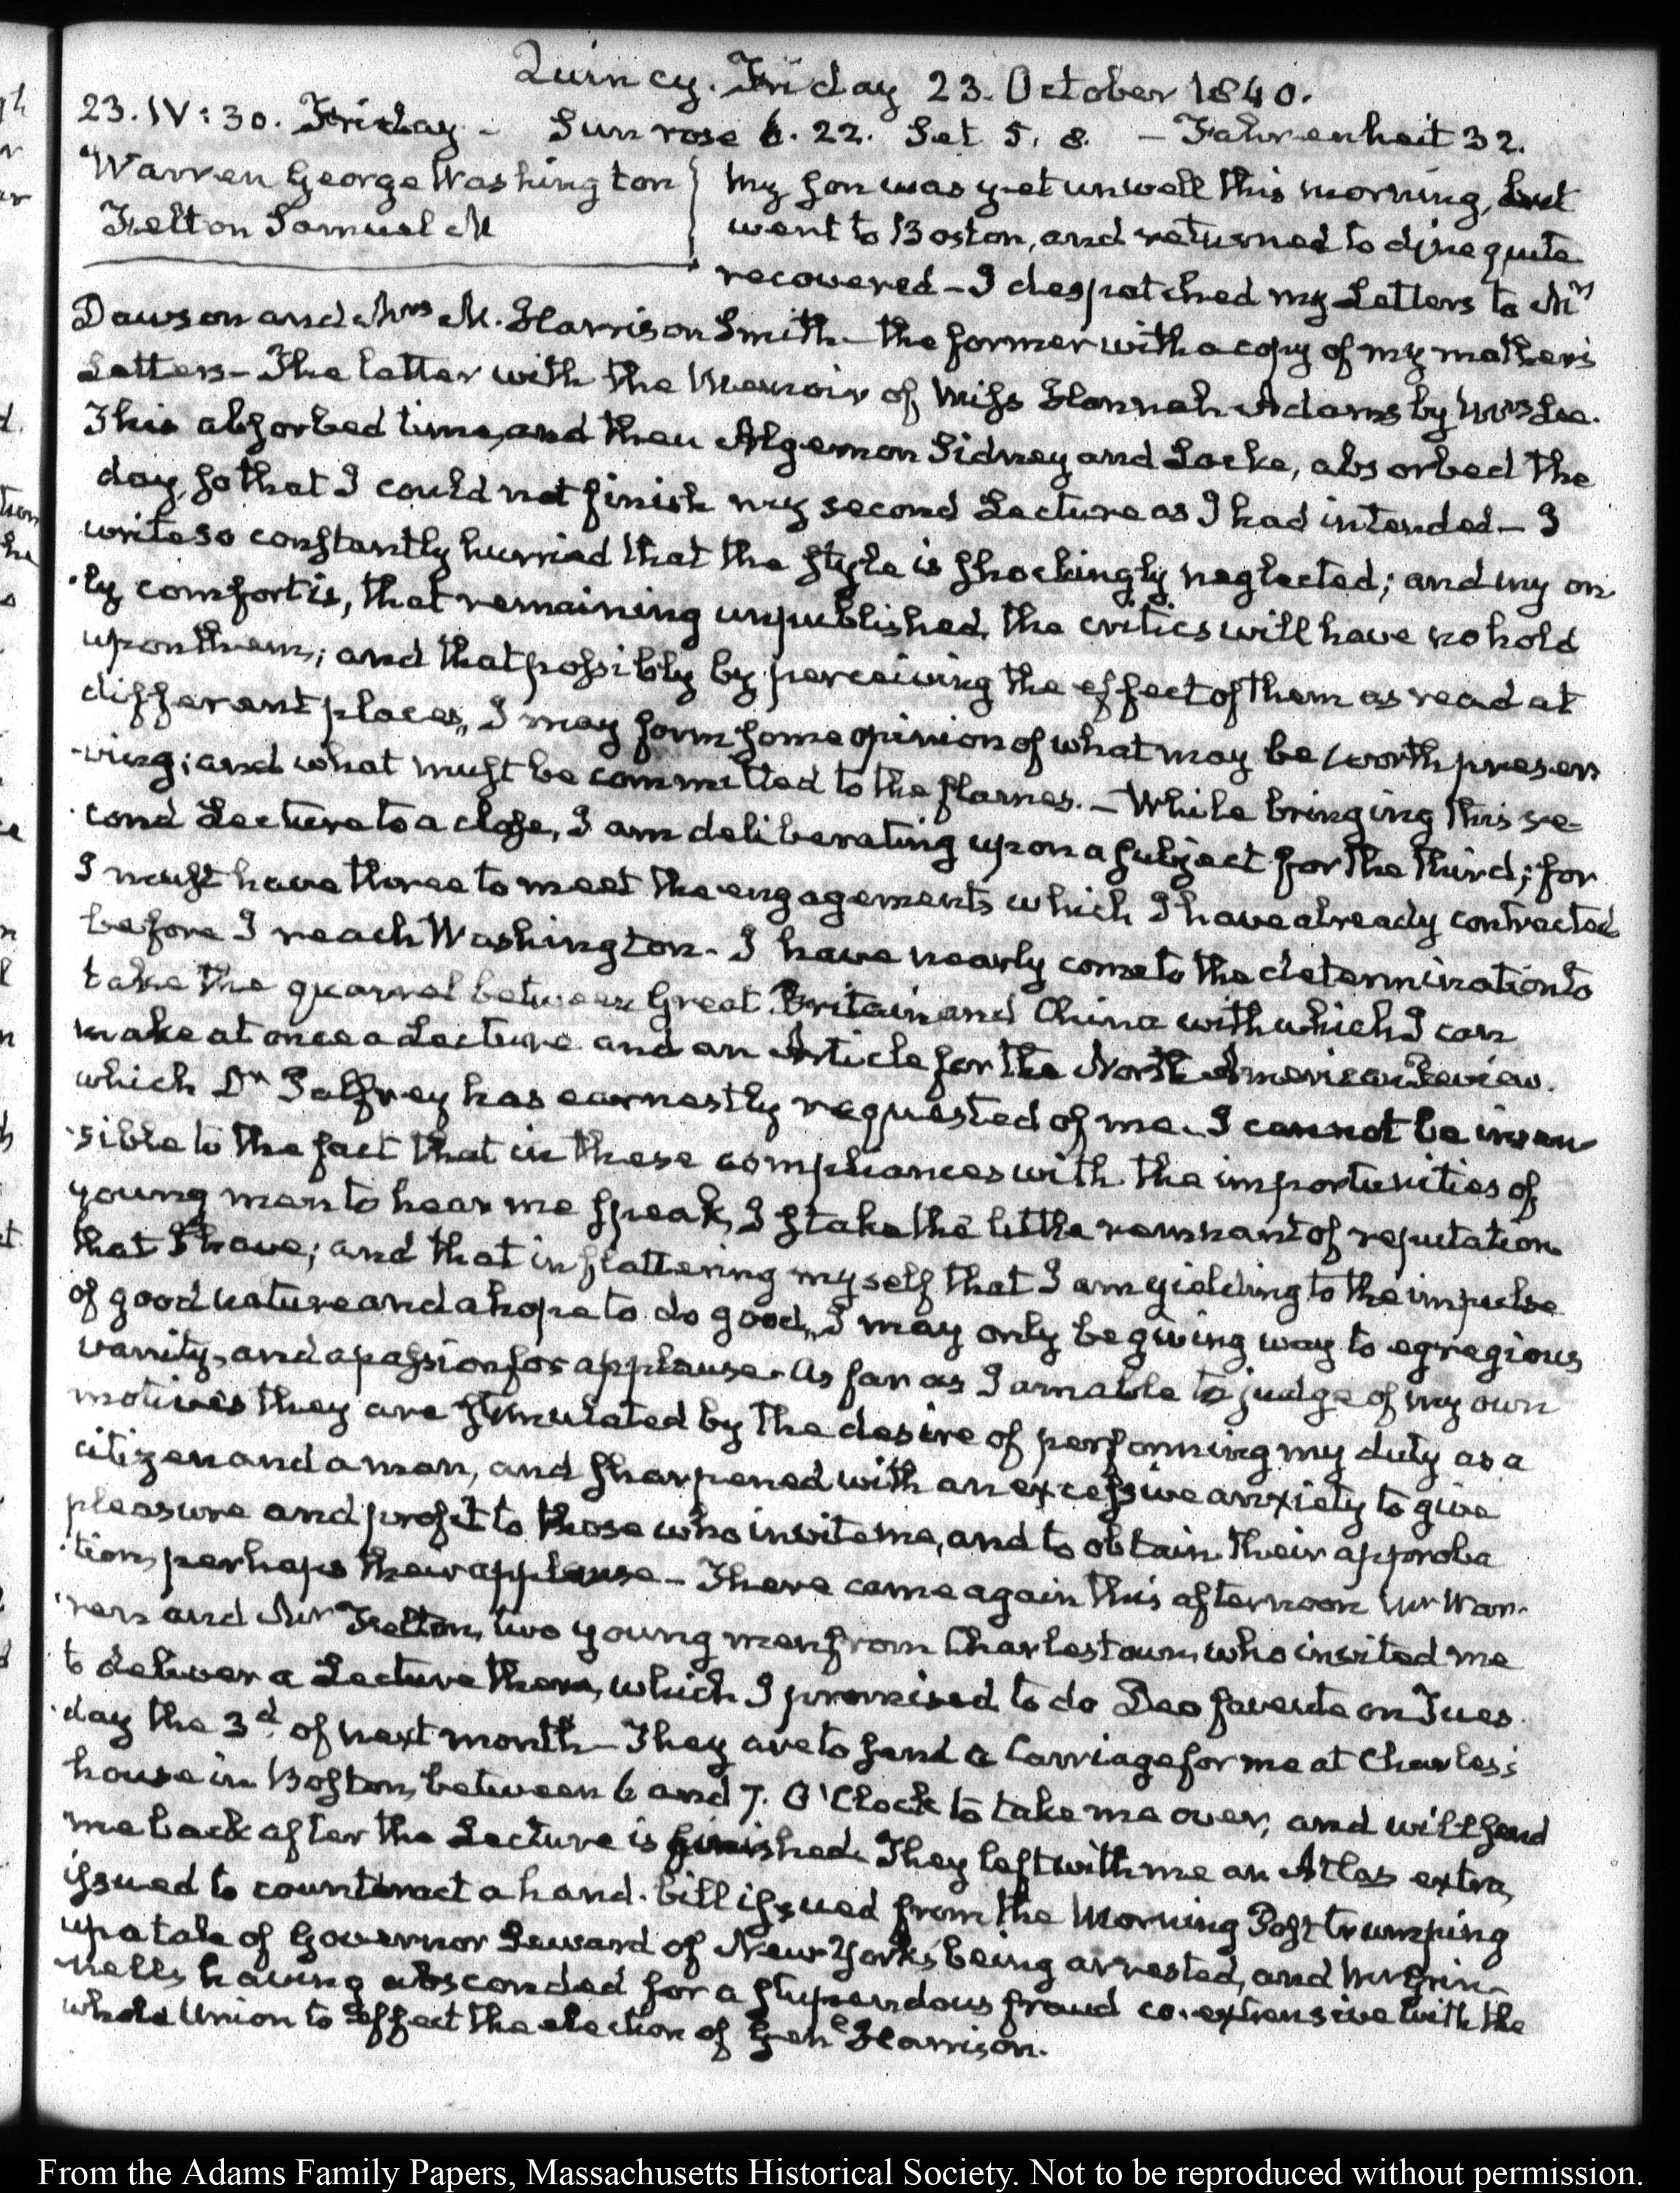 Quincy. Friday 23. October 1840.
23. IV: 30. Friday - Sun rose 6. 22. Set 5. 8. - Fahrenheit 32.
Warren George Washington
Felton Samuel M
My Son was yet unwell this morning, but
went to Boston, and returned to dine quite
recovered - I despatched my Letters to Mr
Dawson and Mrs M. Harrison Smith - the former with a copy of my mother's
Letters - The latter with the Memoir of Miss Hannah Adams by Mrs Lee.
This absorbed time, and then Algernon Sidney and Locke, absorbed the
day, so that I could not finish my second Lecture as I had intended - I
write so constantly hurried that the style is shockingly neglected; and my on
-ly comfort is, that remaining unpublished, the critics will have no hold
upon them; and that possibly by perceiving the effect of them as read at
different places, I may form some opinion of what may be worth preser
-ving; and what must be committed to the flames. - While bringing this se-
cond Lecture to a close, I am deliberating upon a subject for the third; for
I must have three to meet the engagements which I have already contracted
before I reach Washington. I have nearly come to the determination to
take the quarrel between Great Britain and China with which I can
make at once a Lecture and an Article for the North American Review.
which Dr Palfrey has earnestly requested of me. I cannot be insen
-sible to the fact that in these compliances with the importunities of
young men to hear me speak, I stake the little remnant of reputation
that I have; and that in flattering myself that I am yielding to the impulse
of good nature and a hope to do good, I may only be giving way to egregious
vanity, and a passion for applause. As far as I am able to judge of my own
motives they are stimulated by the desire of performing my duty as a
citizen and a man, and sharpened with an excessive anxiety to give
pleasure and profit to those who invite me, and to obtain their approba
-tion, perhaps their applause - There came again this afternoon Mr War-
-ren and Mr Felton, two young men from Charlestown, who invited me
to deliver a Lecture there, which I promised to do Deo favente on Tues
-day the 3d. of next month - They are to send a Carriage for me at Charles's
house in Boston, between 6 and 7. O'Clock to take me over, and will send
me back after the Lecture is finished. They left with me an Atlas extra,
issued to counteract a hand-bill issued from the Morning Post trumping
up a tale of Governor Seward of New-York's being arrested, and Mr Grin-
-nell's having absconded for a stupendous fraud co-extensive with the
whole Union to effect the election of Genl Harrison.
From the Adams Family Papers, Massachusetts Historical Society. Not to be reproduced without permission.